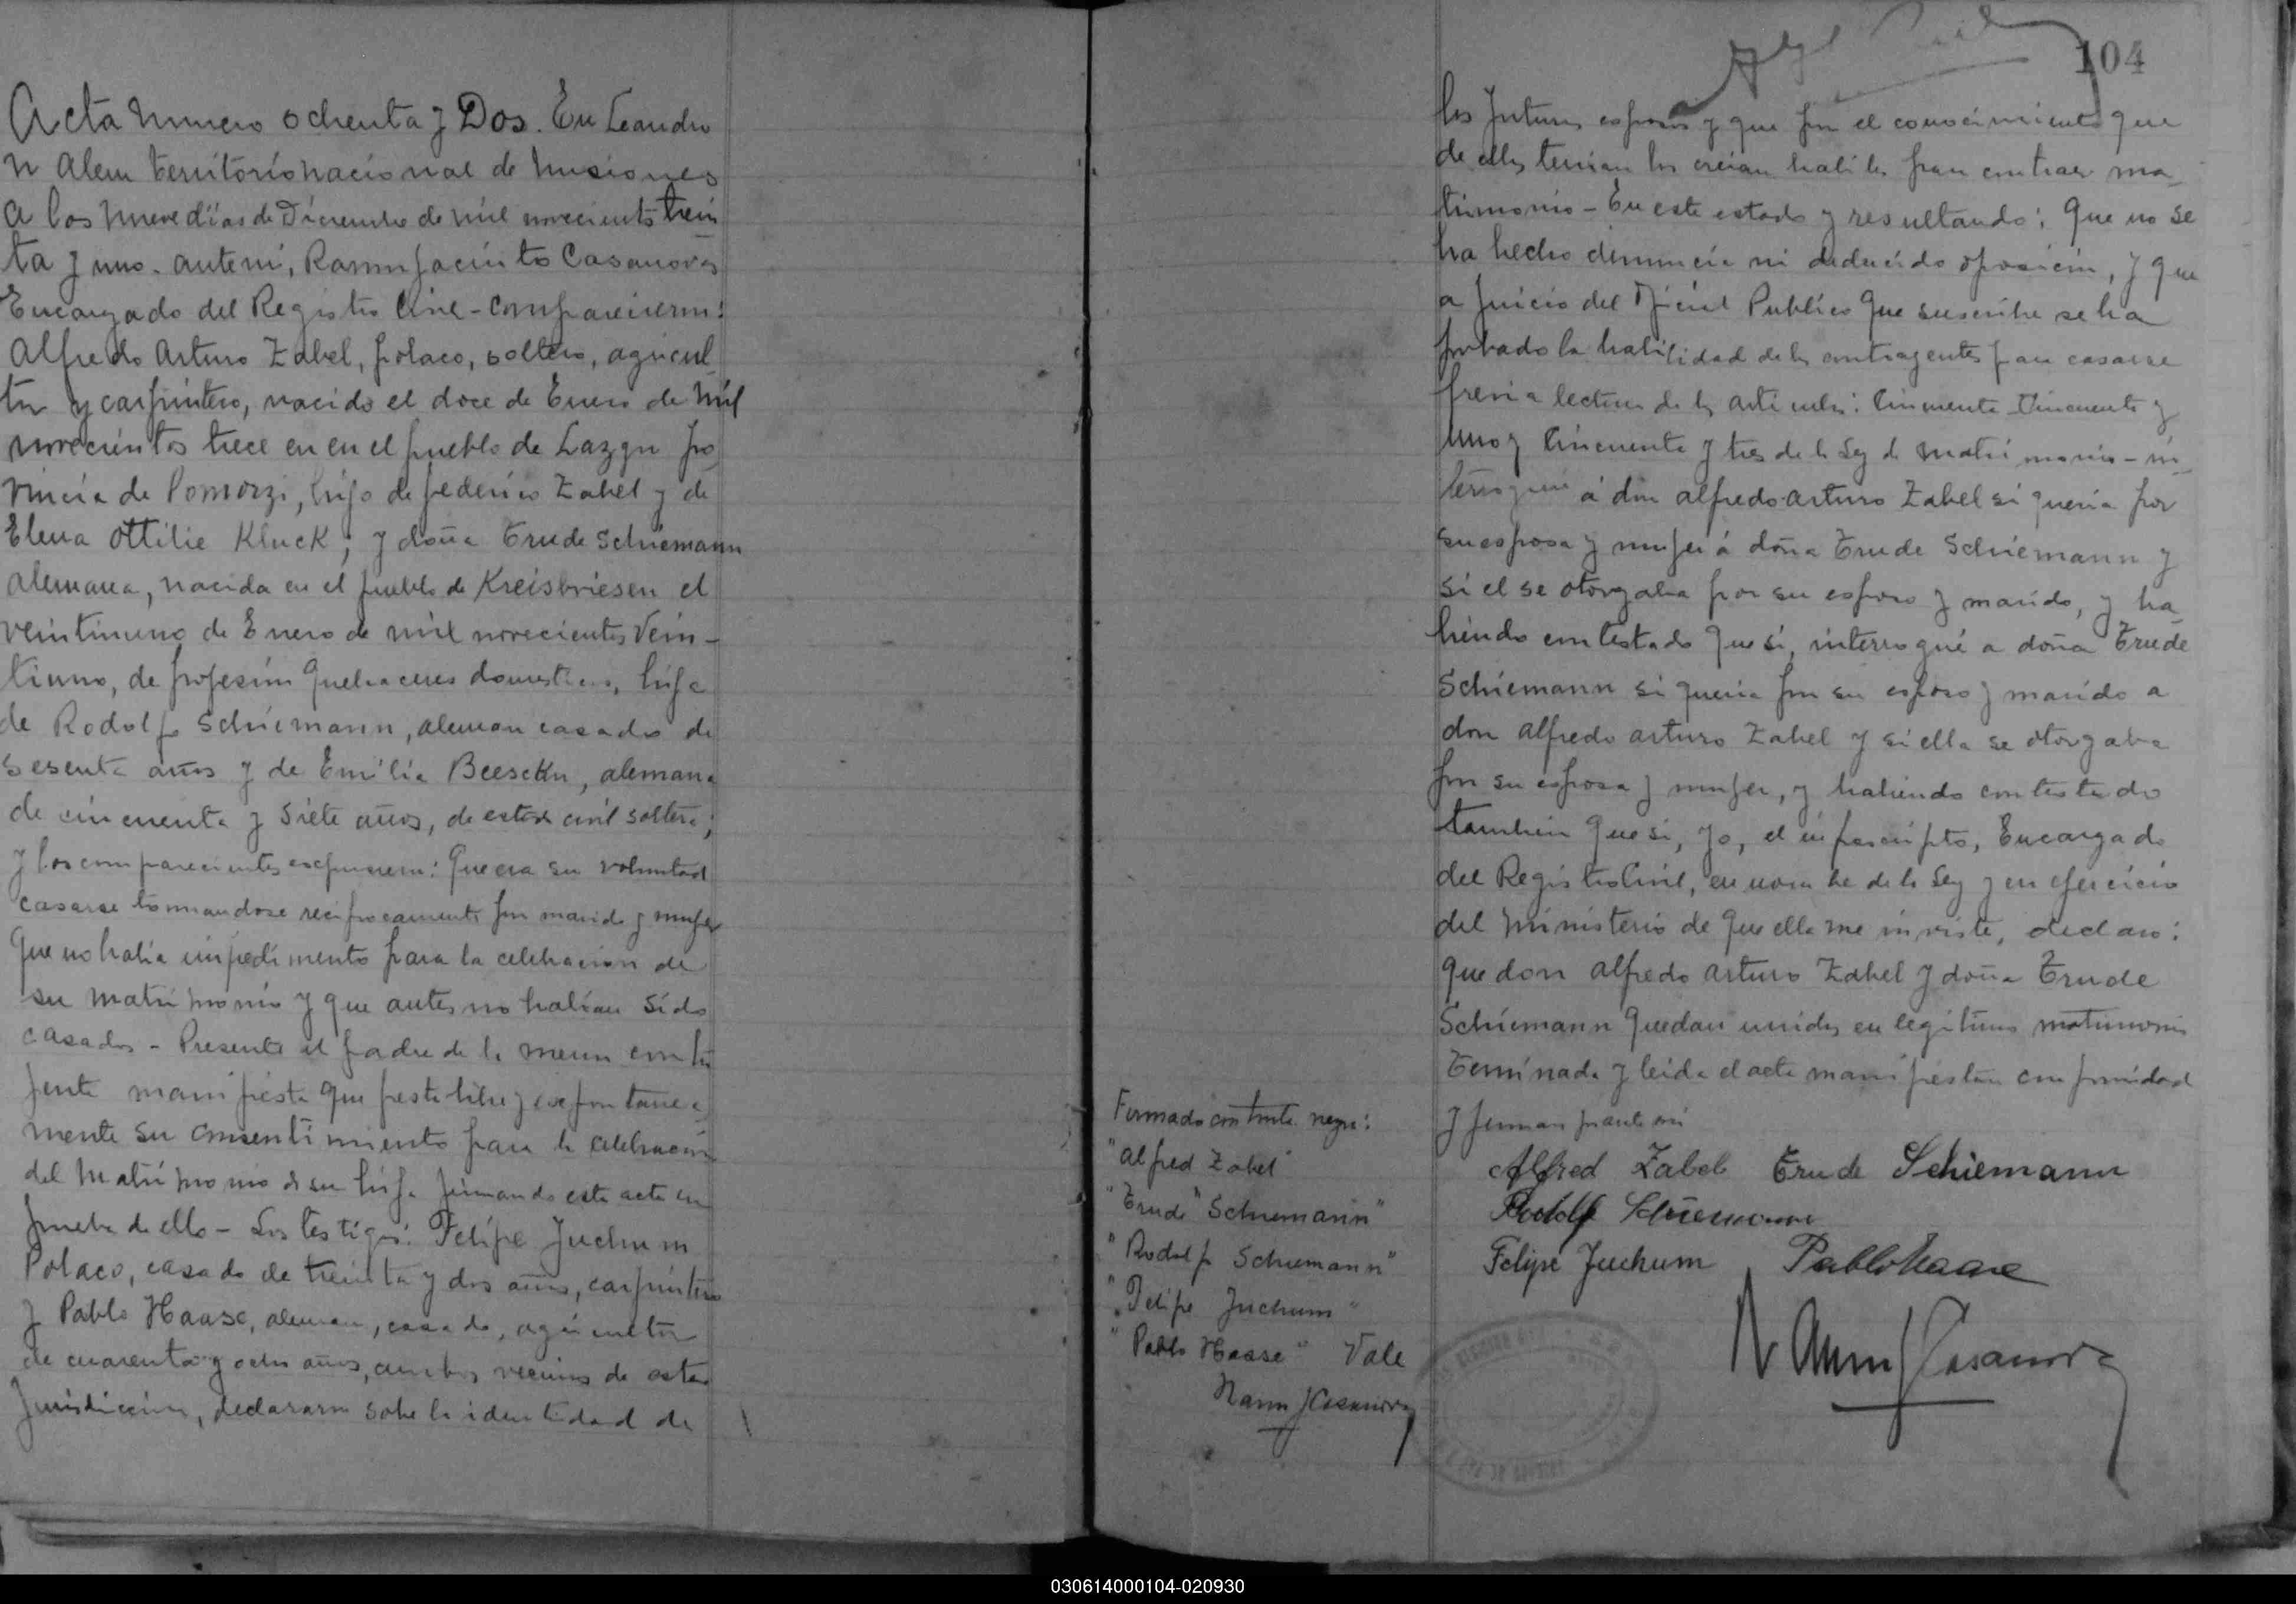 Acta numero ochenta y Dos. En Leandro
N Alem territorio nacional de Misiones
a los nueve dias de Diciembre de mil novecientos trein
ta y uno. ante mi, Ramon Jacinto Casanovas
Encargado del Registro Civil - comparecieron:
Alfredo Arturo Zabel, polaco, soltero, agricul
tor y carpintero, nacido el doce de Enero de mil
novecientos trece en en el pueblo de Lazgn pro
vincia de Pomorzi, hijo de federico Zabel y de
Elena Ottilie Kluck; y doña Erude Schiemann
alemana, nacida en el pueblo de Kreisbriesen el
veintinueno de Enero de mil novecientos vein-
tiuno, de profesion quehaceres domesticos, hija
de Rodolfo Schiemann, aleman casado de
sesenta años y de Emilia Beesckn, alemana
de cincuenta y siete años, de estado civil soltera;
y los comparecientes expusieron: Que era su voluntad
casarse tomandose reciprocamente por marido y mujer
Que no habia impedimento para la celebracion de
su matrimonio y que antes no habian sido
casados - Presente el padre de la menor contra
yente manifiesta que presta libre y espontanea
mente su consentimiento para la celebracion
del matrimonio de su hija firmando esta acta en
prueba de ello - Los testigos: Felipe Juchum
Polaco, casado de treinta y dos años, carpintero
y Pablo Haase, aleman, casado, agricultor
de cuarenta y ocho años, ambos vecinos de esta
Jurisdiccion, declararon sobre la identidad de
104
los futuros esposos y que por el conocimiento que
de ellos tenian los creian habiles para contraer ma
trimonio - En este estado y resultando: Que no se
ha hecho denuncia ni deducido oposicion, y que
a juicio del Oficial Publico que suscribe se ha
probado la habilidad de los contrayentes para casarse
previa lectura de los articulos: Cincuenta Cincuenta y
uno y Cincuenta y tres de la Ley de matrimonio - in
terrogué á don Alfredo Arturo Zabel si queria por
su esposa y mujer á doña Erude Schiemann y
si el se otorgaba por su esposo y marido, y ha
biendo contestado que si, interrogué a doña Erude
Schiemann si queria por su esposo y marido a
don Alfredo Arturo Zabel y si ella se otorgaba
por su esposa y mujer, y habiendo contestado
tambien que si, yo, el infrascripto, Encargado
del Registro Civil, en nombre de la Ley y en ejercicio
del ministerio de que ella me inviste, declaro:
que don Alfredo Arturo Zabel y doña Erude
Schiemann quedan unidos en legitimo matrimonio
Terminada y leida el acta manifiestan conformidad
y firman por ante mi
Alfred Zabel Erude Schiemann
Rodolf Schiemann
Felipe Juchum Pablo Haase
Ramon J Casanovas
Firmado con tinta negra:
"Alfred Zabel"
"Erude" Schiemann"
"Rodolfo Schiemann"
"Felipe Juchum"
"Pablo Haase" Vale
Ramon J Casanovas
030614000104-020930